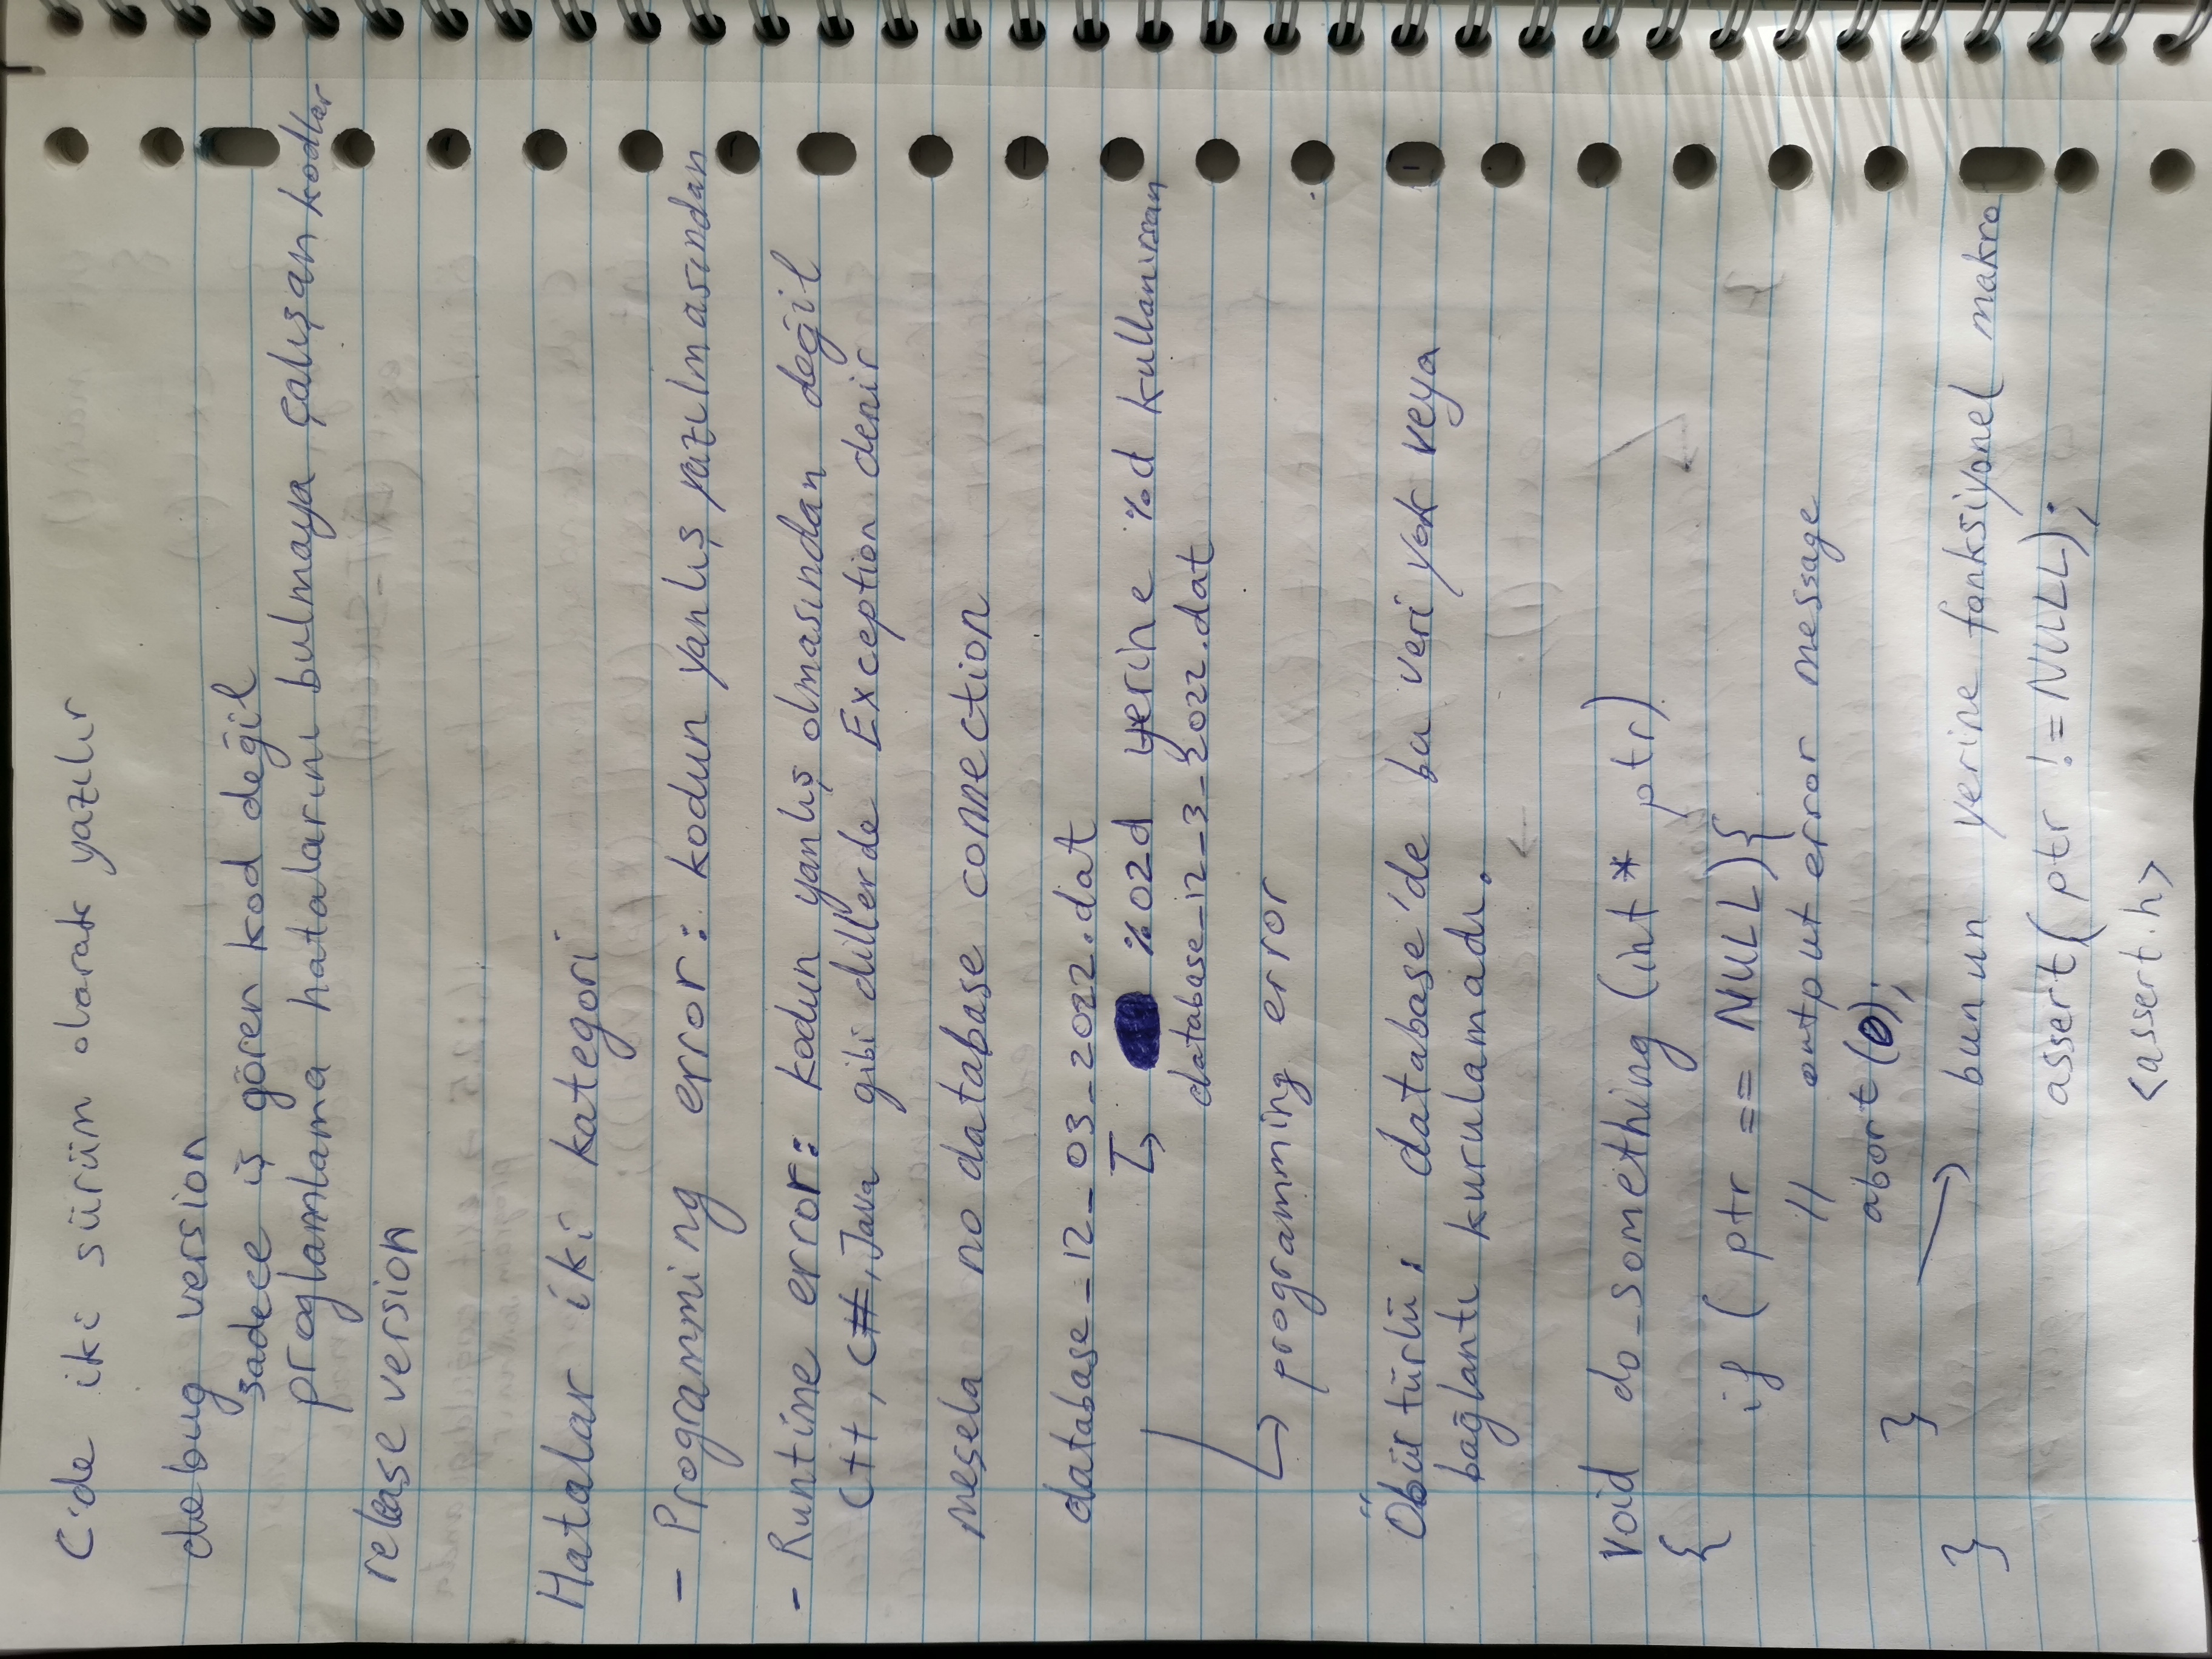 C'de iki sürüm olarak yazılır
debug version
sadece iş gören kod değil
proglamlama hatalarını bulmaya çalışan kodlar
release version
Hatalar iki kategori
- Programming error: kodun yanlış yazılmasından
- Runtime error: kodun yanlış olmasından değil
C++, C#, Java gibi dillerde Exception denir
mesela no database connection
database_12_03_2022.dat
↳ %02d yerine %d kullanırsan
database_12_3_2022.dat
↳ programming error
Öbür türlü: database'de bu veri yok veya
bağlantı kurulamadı.
void do_something (int* ptr)
{
if ( ptr == NULL){
// output error message
abort(0);
}
} → bunun yerine fonksiyonel makro
assert( ptr != NULL);
<assert.h>